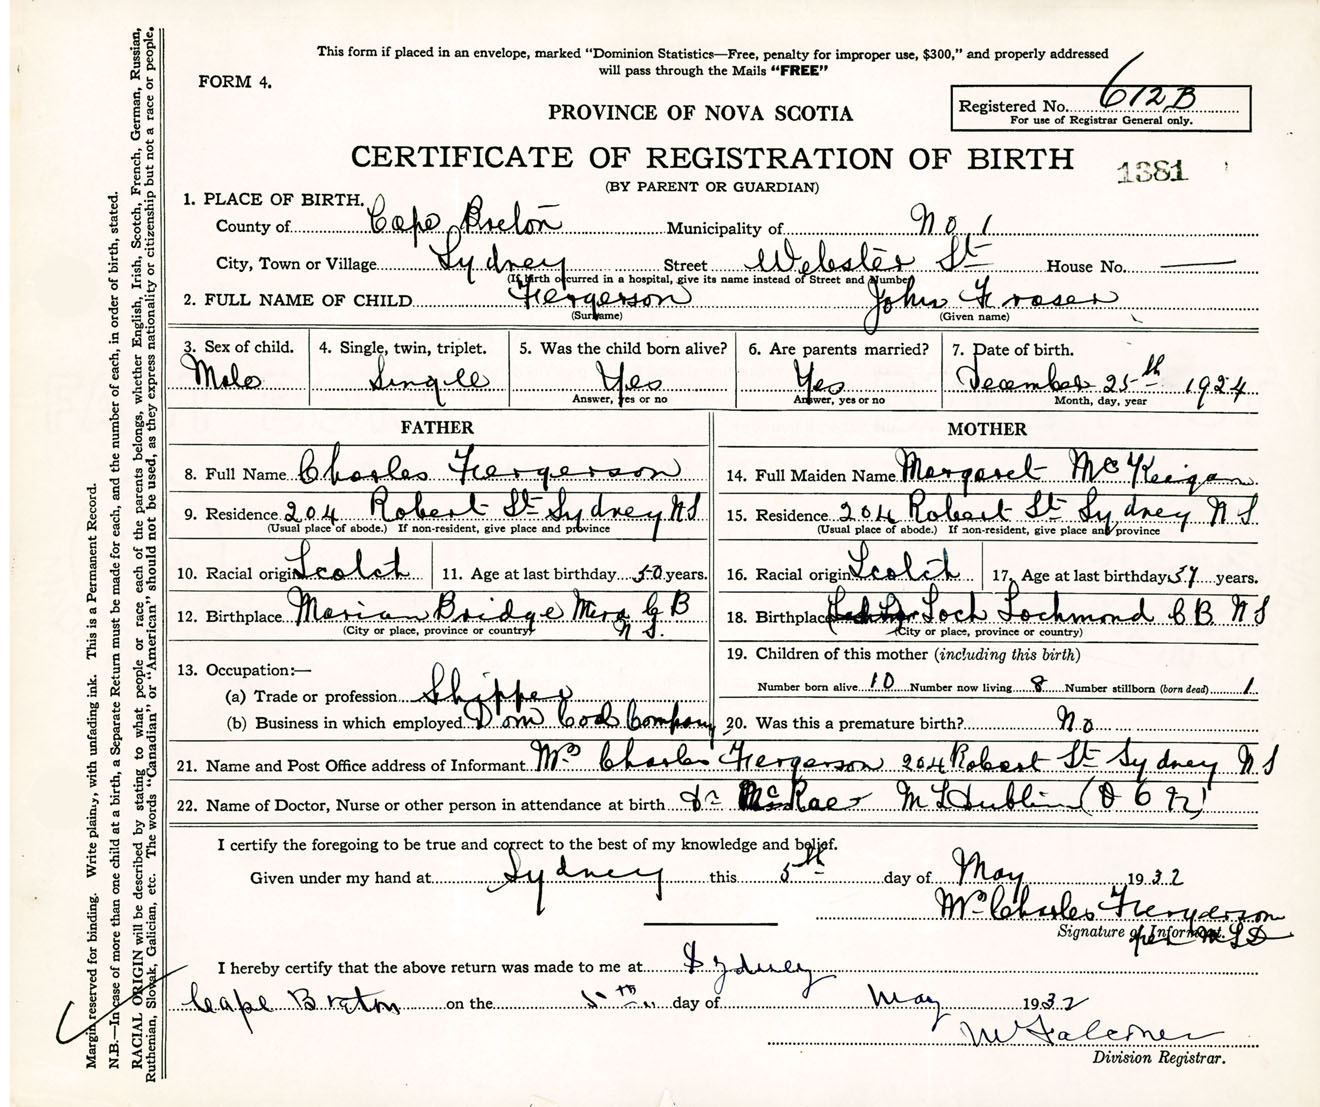 This form if placed in an envelope, marked “Dominion Statistics—Free, penalty for improper use, $300,” and properly addressed
will pass through the Mails “FREE”
FORM 4.
Registered No. 612B
For use of Registrar General only.
PROVINCE OF NOVA SCOTIA
CERTIFICATE OF REGISTRATION OF BIRTH
1381
(BY PARENT OR GUARDIAN)
1. PLACE OF BIRTH.
County of Cape Breton Municipality of No 1
City, Town or Village Sydney Street Webster St House No. —
(If birth occurred in a hospital, give its name instead of Street and Number)
2. FULL NAME OF CHILD Fergerson John Fraser
(Surname) (Given name)
3. Sex of child. 4. Single, twin, triplet. 5. Was the child born alive? 6. Are parents married? 7. Date of birth.
Male Single Yes Yes December 25th 1924
Answer, yes or no Answer, yes or no Month, day, year
FATHER MOTHER
8. Full Name Charles Fergerson
14. Full Maiden Name Margaret McKeigan
9. Residence 204 Robert St Sydney NS
(Usual place of abode.) If non-resident, give place and province
15. Residence 204 Robert St Sydney NS
(Usual place of abode.) If non-resident, give place and province
10. Racial origin Scotch 11. Age at last birthday 50 years.
16. Racial origin Scotch 17. Age at last birthday 57 years.
12. Birthplace Marian Bridge Mira C B
N S.
(City or place, province or country)
18. Birthplace Loch Lochmond C B. N S
(City or place, province or country)
13. Occupation:—
(a) Trade or profession Shipper
(b) Business in which employed Dom Coal Company
19. Children of this mother (including this birth)
Number born alive 10 Number now living 8 Number stillborn (born dead) 1
20. Was this a premature birth? No
21. Name and Post Office address of Informant Mrs Charles Fergerson 204 Robert St Sydney N S
22. Name of Doctor, Nurse or other person in attendance at birth Dr McRae
I certify the foregoing to be true and correct to the best of my knowledge and belief.
Given under my hand at Sydney this 5th day of May 1932
Mrs Charles Fergerson
Signature of Informant.
per
I hereby certify that the above return was made to me at Sydney
Cape Breton on the 5th day of May 1932
Division Registrar.
Margin reserved for binding. Write plainly, with unfading ink. This is a Permanent Record.
N.B.—In case of more than one child at a birth, a Separate Return must be made for each, and the number of each, in order of birth, stated.
RACIAL ORIGIN will be described by stating to what people or race each of the parents belongs, whether English, Irish, Scotch, French, German, Russian,
Ruthenian, Slovak, Galician, etc. The words “Canadian” or “American” should not be used, as they express nationality or citizenship but not a race or people.